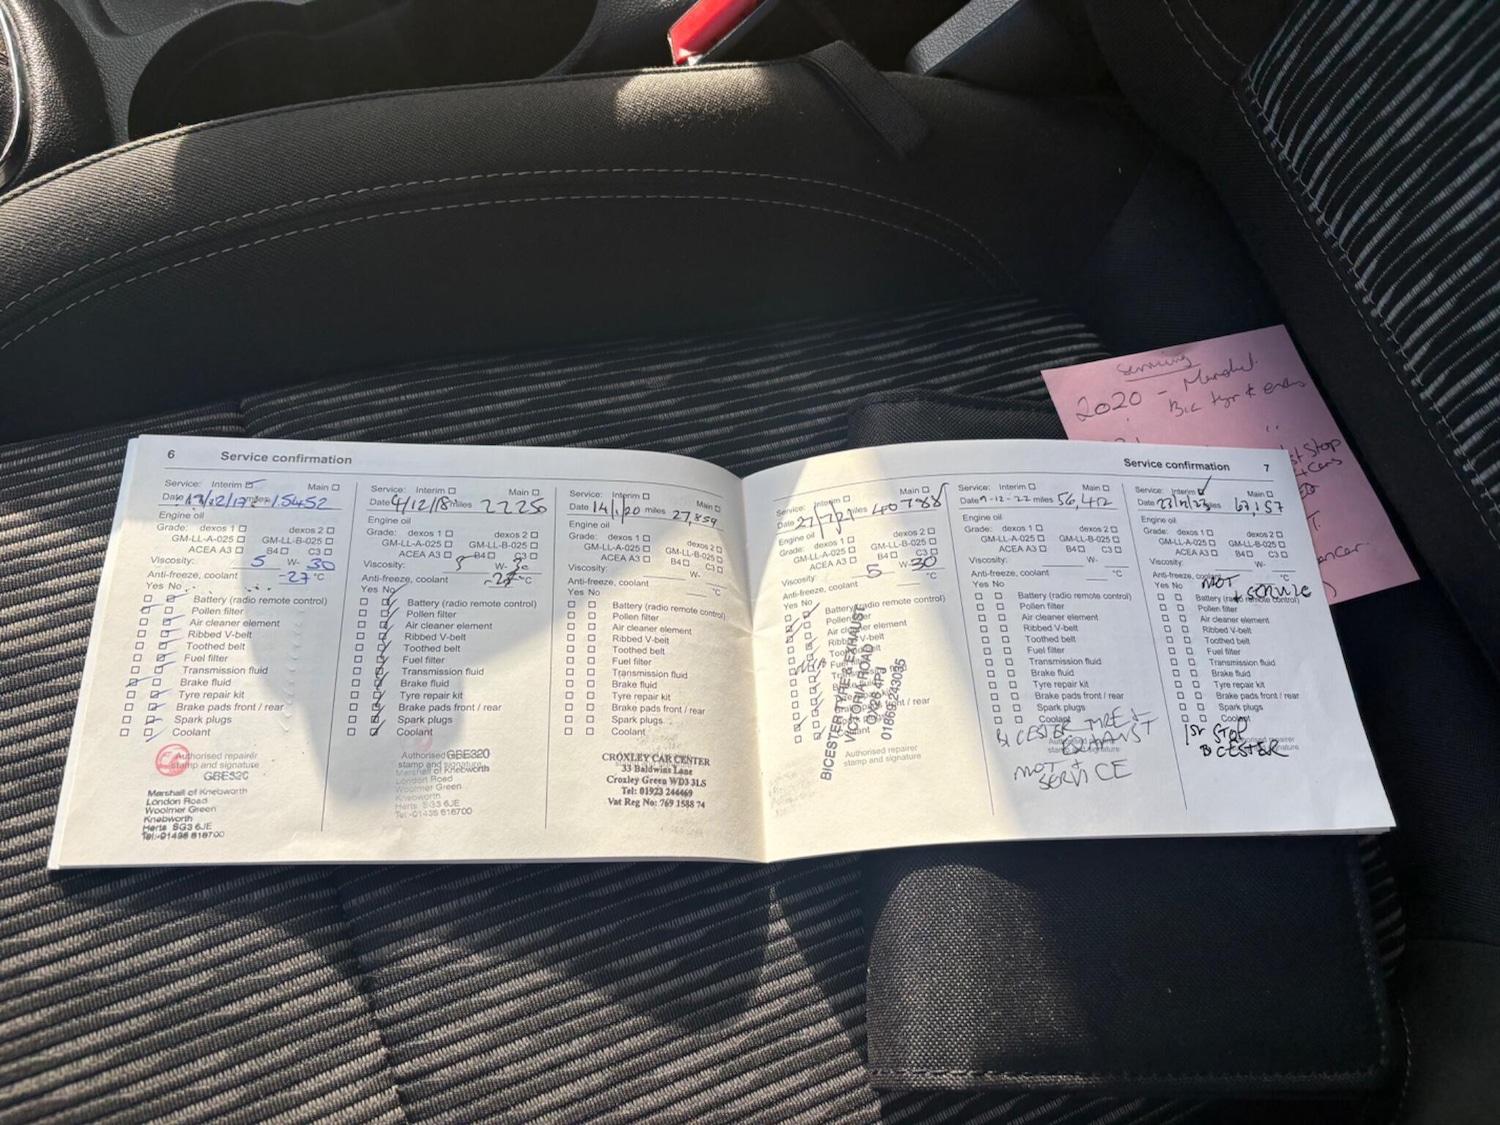 6 Service confirmation
Service: Interim Main
Date 13/12/17 miles 15452
Engine oil
Grade: dexos 1 dexos 2
GM-LL-A-025 GM-LL-B-025
ACEA A3 B4 C3
Viscosity: 5 W- 30
Anti-freeze, coolant -27 °C
Yes No
Battery (radio remote control)
Pollen filter
Air cleaner element
Ribbed V-belt
Toothed belt
Fuel filter
Transmission fluid
Brake fluid
Tyre repair kit
Brake pads front / rear
Spark plugs
Coolant
Authorised repairer
stamp and signature
GBE320
Marshall of Knebworth
London Road
Woolmer Green
Knebworth
Herts SG3 6JE
Tel:-01438 816700
Service: Interim Main
Date 4/12/18 miles 22250
Engine oil
Grade: dexos 1 dexos 2
GM-LL-A-025 GM-LL-B-025
ACEA A3 B4 C3
Viscosity: 5 W- 30
Anti-freeze, coolant -27 °C
Yes No
Battery (radio remote control)
Pollen filter
Air cleaner element
Ribbed V-belt
Toothed belt
Fuel filter
Transmission fluid
Brake fluid
Tyre repair kit
Brake pads front / rear
Spark plugs
Coolant
Authorised GBE320
stamp and signature
Marshall of Knebworth
London Road
Woolmer Green
Knebworth
Herts SG3 6JE
Tel:-01438 816700
Service: Interim Main
Date 14/1/20 miles 27,859
Engine oil
Grade: dexos 1 dexos 2
GM-LL-A-025 GM-LL-B-025
ACEA A3 B4 C3
Viscosity: W-
Anti-freeze, coolant °C
Yes No
Battery (radio remote control)
Pollen filter
Air cleaner element
Ribbed V-belt
Toothed belt
Fuel filter
Transmission fluid
Brake fluid
Tyre repair kit
Brake pads front / rear
Spark plugs
Coolant
CROXLEY CAR CENTER
33 Baldwins Lane
Croxley Green WD3 3LS
Tel: 01923 244469
Vat Reg No: 769 1588 74
Service confirmation 7
Service: Interim Main
Date 27/1/21 40788
Engine oil
Grade: dexos 1 dexos 2
GM-LL-A-025 GM-LL-B-025
ACEA A3 B4 C3
Viscosity: 5 W- 30
Anti-freeze, coolant °C
Yes No
Battery (radio remote control)
Pollen filter
Air cleaner element
Ribbed V-belt
Brake pads front / rear
Authorised repairer
stamp and signature
BICESTER TYRE & EXHAUST
VICTORIA ROAD
OX26 4PJ
01869 243035
Service: Interim Main
Date 9-12-22 miles 56,412
Engine oil
Grade: dexos 1 dexos 2
GM-LL-A-025 GM-LL-B-025
ACEA A3 B4 C3
Viscosity: W-
Anti-freeze, coolant °C
Yes No
Battery (radio remote control)
Pollen filter
Air cleaner element
Ribbed V-belt
Toothed belt
Fuel filter
Transmission fluid
Brake fluid
Tyre repair kit
Brake pads front / rear
Spark plugs
Coolant
BICESTER TYRE &
EXHAUST
MOT +
SERVICE
Service: Interim Main
Date 23/12/23 miles 67,157
Engine oil
Grade: dexos 1 dexos 2
GM-LL-A-025 GM-LL-B-025
ACEA A3 B4 C3
Viscosity: W-
Anti-freeze, coolant °C
Yes No MOT
+ SERVICE
Battery (radio remote control)
Pollen filter
Air cleaner element
Ribbed V-belt
Toothed belt
Fuel filter
Transmission fluid
Brake fluid
Tyre repair kit
Brake pads front / rear
Spark plugs
Coolant
1st STOP
BICESTER
Authorised repairer
stamp and signature
Servicing
2020 - Marshal.
Bic tyr & exhs
"
st Stop
Cars